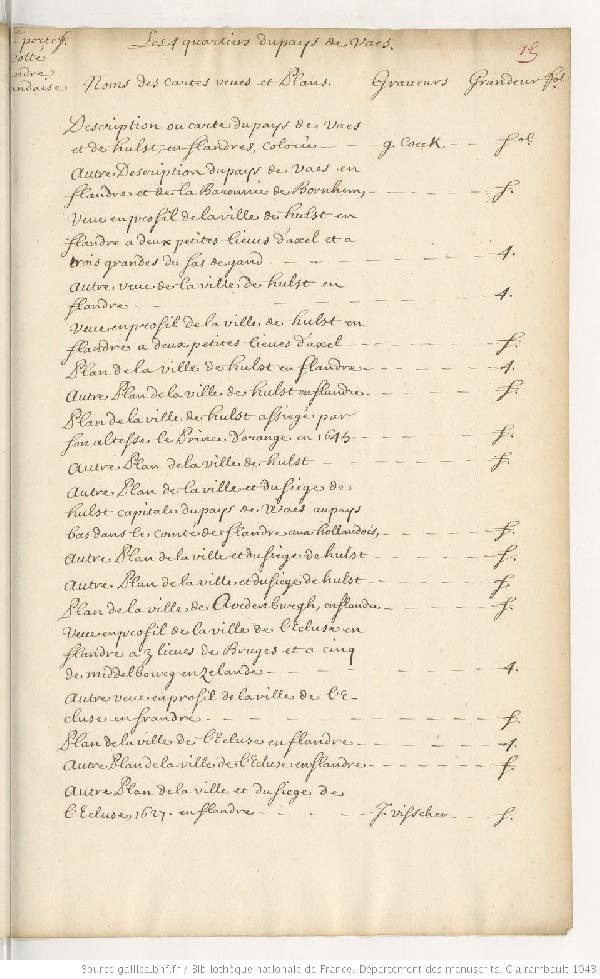 Les 4 quartiers du pays de Vaes.
15
portef.
cotté
andre
andaise
Noms des cartes veues et Plans. Graveurs Grandeur fol.
Description ou carte du pays de Vaes
et de hulst, en flandres, coloriée — g. Coeck — fol.
Autre Description du pays de Vaes en
flandre et de la Baronnie de Bornhem, — f.
Veue en profil de la ville de hulst en
flandre a deux petites lieues d'axel et a
trois grandes du sas de gand — 4.
Autre veue de la ville de hulst en
flandre — 4.
Veue en profil de la ville de hulst en
flandre a deux petites lieues d'axel — f.
Plan de la ville de hulst en flandre — 4.
Autre Plan de la ville de hulst en flandre. — f.
Plan de la ville de hulst assiegé par
son altesse le Prince d'orange en 1645 — f.
Autre Plan de la ville de hulst — f.
Autre Plan de la ville et du siege de
hulst capitale du pays de Waes au pays
bas dans le comté de flandre aux hollandois, — f.
Autre Plan de la ville et du siege de hulst — f.
Autre Plan de la ville et du siege de hulst — f.
Plan de la ville de Ardenburgh, en flandre — f.
Veue en profil de la ville de l'Ecluse en
flandre a 3 lieues de Bruges et a cinq
de middelbourg en zelande — 4.
Autre veue en profil de la ville de l'E-
cluse en frandre — f.
Plan de la ville de l'Ecluse en flandre — 4.
Autre Plan de la ville de l'Ecluse en flandre — f.
Autre Plan de la ville et du siege de
l'Ecluse, 1627. en flandre — J. Visscher — f.
Source gallica.bnf.fr / Bibliothèque nationale de France. Département des manuscrits. Clairambault 1043